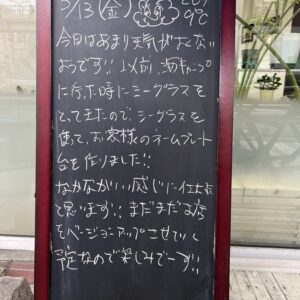 3/13(金) 20℃ 9℃
今日はあまり天気がよくない
ようです!! 以前、海キャンプ
に行った時にシーグラスを
とってきたので、シーグラスを
使って、お客様のネームプレート
台を作りました!!
なかなかいい感じに仕上た
と思います!! まだまだお店
をバージョンアップさせていく
予定なので楽しみでーす!!